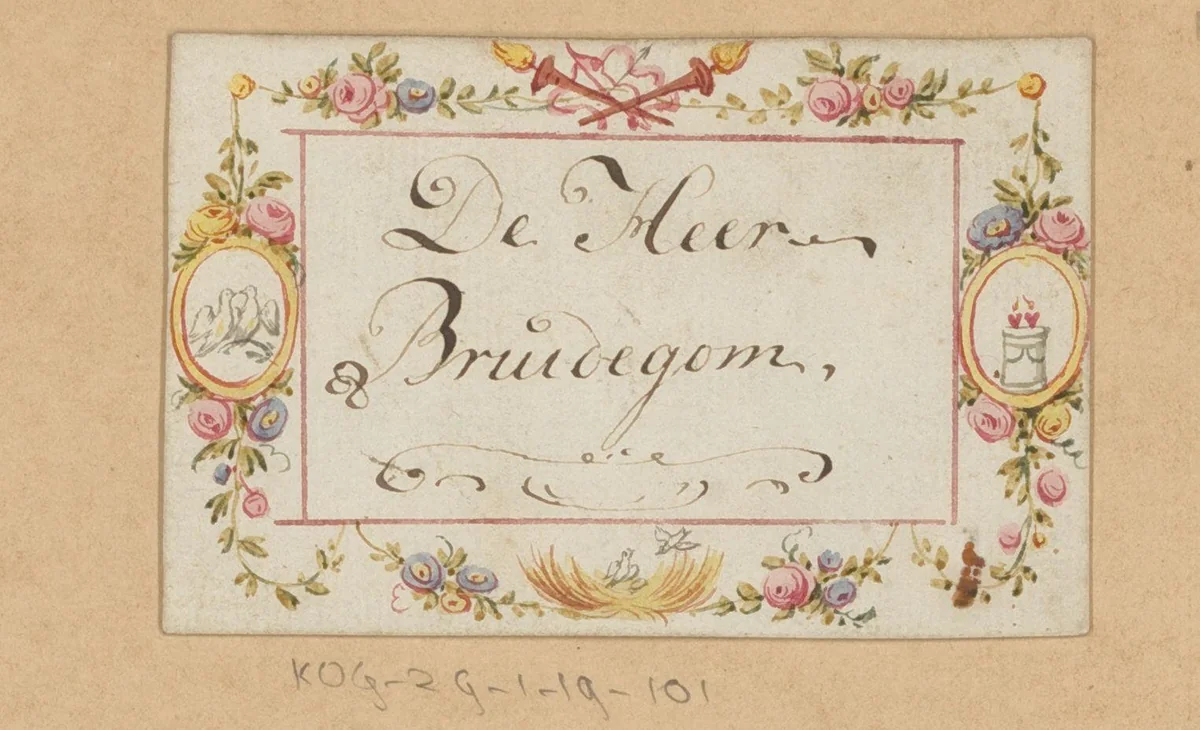 De Heer
Bruidegom,
KOG-2G-1-19-101